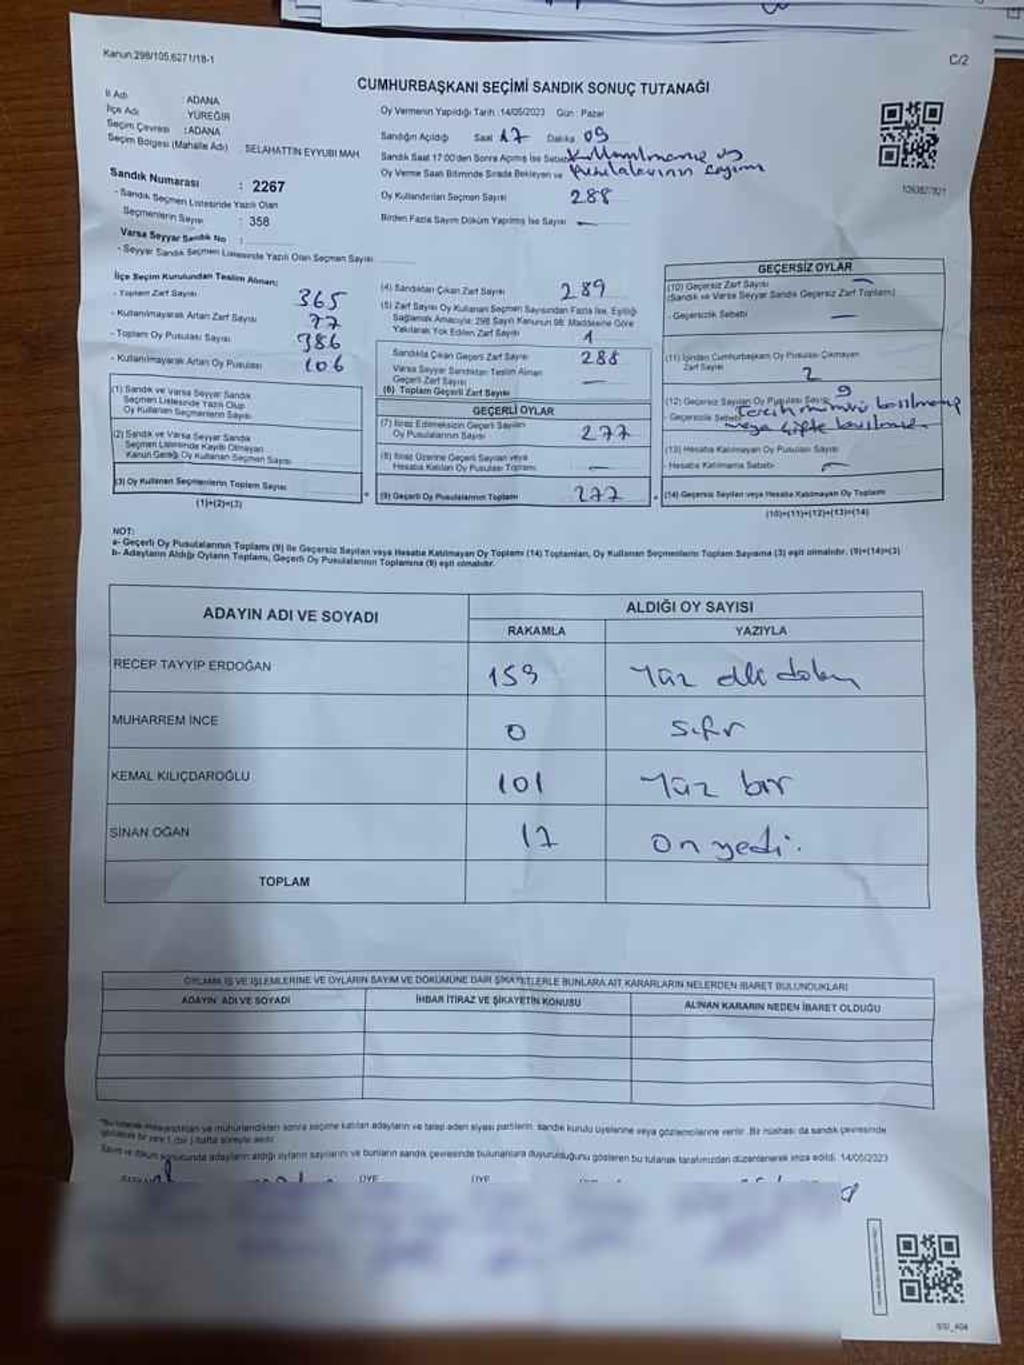 Kanun:298/105,6271/18-1
C/2
CUMHURBAŞKANI SEÇİMİ SANDIK SONUÇ TUTANAĞI
İl Adı : ADANA
İlçe Adı : YÜREĞİR
Seçim Çevresi : ADANA
Seçim Bölgesi (Mahalle Adı) : SELAHATTİN EYYUBİ MAH.
Oy Vermenin Yapıldığı Tarih :14/05/2023 Gün : Pazar
Sandığın Açıldığı Saat 17 Dakika 09
Sandık Saat 17:00'den Sonra Açılmış İse Sebebi Kullanılmamış oy
Oy Verme Saati Bitiminde Sırada Bekleyen ve pusulalarının sayımı
Oy Kullandırılan Seçmen Sayısı 288
Birden Fazla Sayım Döküm Yapılmış İse Sayısı —
Sandık Numarası : 2267
- Sandık Seçmen Listesinde Yazılı Olan
Seçmenlerin Sayısı : 358
Varsa Seyyar Sandık No :
- Seyyar Sandık Seçmen Listesinde Yazılı Olan Seçmen Sayısı
İlçe Seçim Kurulundan Teslim Alınan;
- Toplam Zarf Sayısı 365
- Kullanılmayarak Artan Zarf Sayısı 77
- Toplam Oy Pusulası Sayısı 386
- Kullanılmayarak Artan Oy Pusulası 106
(1) Sandık ve Varsa Seyyar Sandık
Seçmen Listesinde Yazılı Olup
Oy Kullanan Seçmenlerin Sayısı
(2) Sandık ve Varsa Seyyar Sandık
Seçmen Listesinde Kayıtlı Olmayan
Kanun Gereği Oy Kullanan Seçmen Sayısı
(3) Oy Kullanan Seçmenlerin Toplam Sayısı
(1)+(2)=(3)
(4) Sandıktan Çıkan Zarf Sayısı 289
(5) Zarf Sayısı Oy Kullanan Seçmen Sayısından Fazla İse, Eşitliği
Sağlamak Amacıyla; 298 Sayılı Kanunun 98. Maddesine Göre
Yakılarak Yok Edilen Zarf Sayısı 1
Sandıkta Çıkan Geçerli Zarf Sayısı 288
Varsa Seyyar Sandıktan Teslim Alınan
Geçerli Zarf Sayısı —
(6) Toplam Geçerli Zarf Sayısı
GEÇERLİ OYLAR
(7) İtiraz Edilmeksizin Geçerli Sayılan
Oy Pusulalarının Sayısı 277
(8) İtiraz Üzerine Geçerli Sayılan veya
Hesaba Katılan Oy Pusulası Toplamı —
(9) Geçerli Oy Pusulalarının Toplamı 277
GEÇERSİZ OYLAR
(10) Geçersiz Zarf Sayısı —
(Sandık ve Varsa Seyyar Sandık Geçersiz Zarf Toplamı)
- Geçersizlik Sebebi —
(11) İçinden Cumhurbaşkanı Oy Pusulası Çıkmayan
Zarf Sayısı 2
(12) Geçersiz Sayılan Oy Pusulası Sayısı 9
- Geçersizlik Sebebi Tercih mührü basılmamış
veya çifte
(13) Hesaba Katılmayan Oy Pusulası Sayısı
- Hesaba Katılmama Sebebi —
(14) Geçersiz Sayılan veya Hesaba Katılmayan Oy Toplamı
(10)+(11)+(12)+(13)=(14)
NOT:
a- Geçerli Oy Pusulalarının Toplamı (9) ile Geçersiz Sayılan veya Hesaba Katılmayan Oy Toplamı (14) Toplamları, Oy Kullanan Seçmenlerin Toplam Sayısına (3) eşit olmalıdır. (9)+(14)=(3)
b- Adayların Aldığı Oyların Toplamı, Geçerli Oy Pusulalarının Toplamına (9) eşit olmalıdır.
ADAYIN ADI VE SOYADI
ALDIĞI OY SAYISI
RAKAMLA YAZIYLA
RECEP TAYYİP ERDOĞAN 159 Yüz elli dokuz
MUHARREM İNCE 0 sıfır
KEMAL KILIÇDAROĞLU 101 Yüz bir
SİNAN OĞAN 17 on yedi.
TOPLAM
OYLAMA İŞ VE İŞLEMLERİNE VE OYLARIN SAYIM VE DÖKÜMÜNE DAİR ŞİKAYETLERLE BUNLARA AİT KARARLARIN NELERDEN İBARET BULUNDUKLARI
ADAYIN ADI VE SOYADI İHBAR İTİRAZ VE ŞİKAYETİN KONUSU ALINAN KARARIN NEDEN İBARET OLDUĞU
mühürlendikten sonra seçime katılan adayların ve talep eden siyasi partilerin, sandık kurulu üyelerine veya gözlemcilerine verilir. Bir nüshası da sandık çevresinde
bir yere 1 (bir) hafta süreyle asılır.
Sayım ve döküm sonucunda adayların aldığı oyların sayılarını ve bunların sandık çevresinde bulunanlara duyurulduğunu gösteren bu tutanak tarafımızdan düzenlenerek imza edildi. 14/05/2023
ÜYE ÜYE